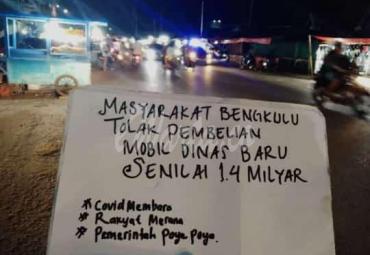 MASYARAKAT BENGKULU
TOLAK PEMBELIAN
MOBIL DINAS BARU
SENILAI 1.4 MILYAR
#Covid Membara
#Rakyat Merana
#Pemerintah Poya Poya.